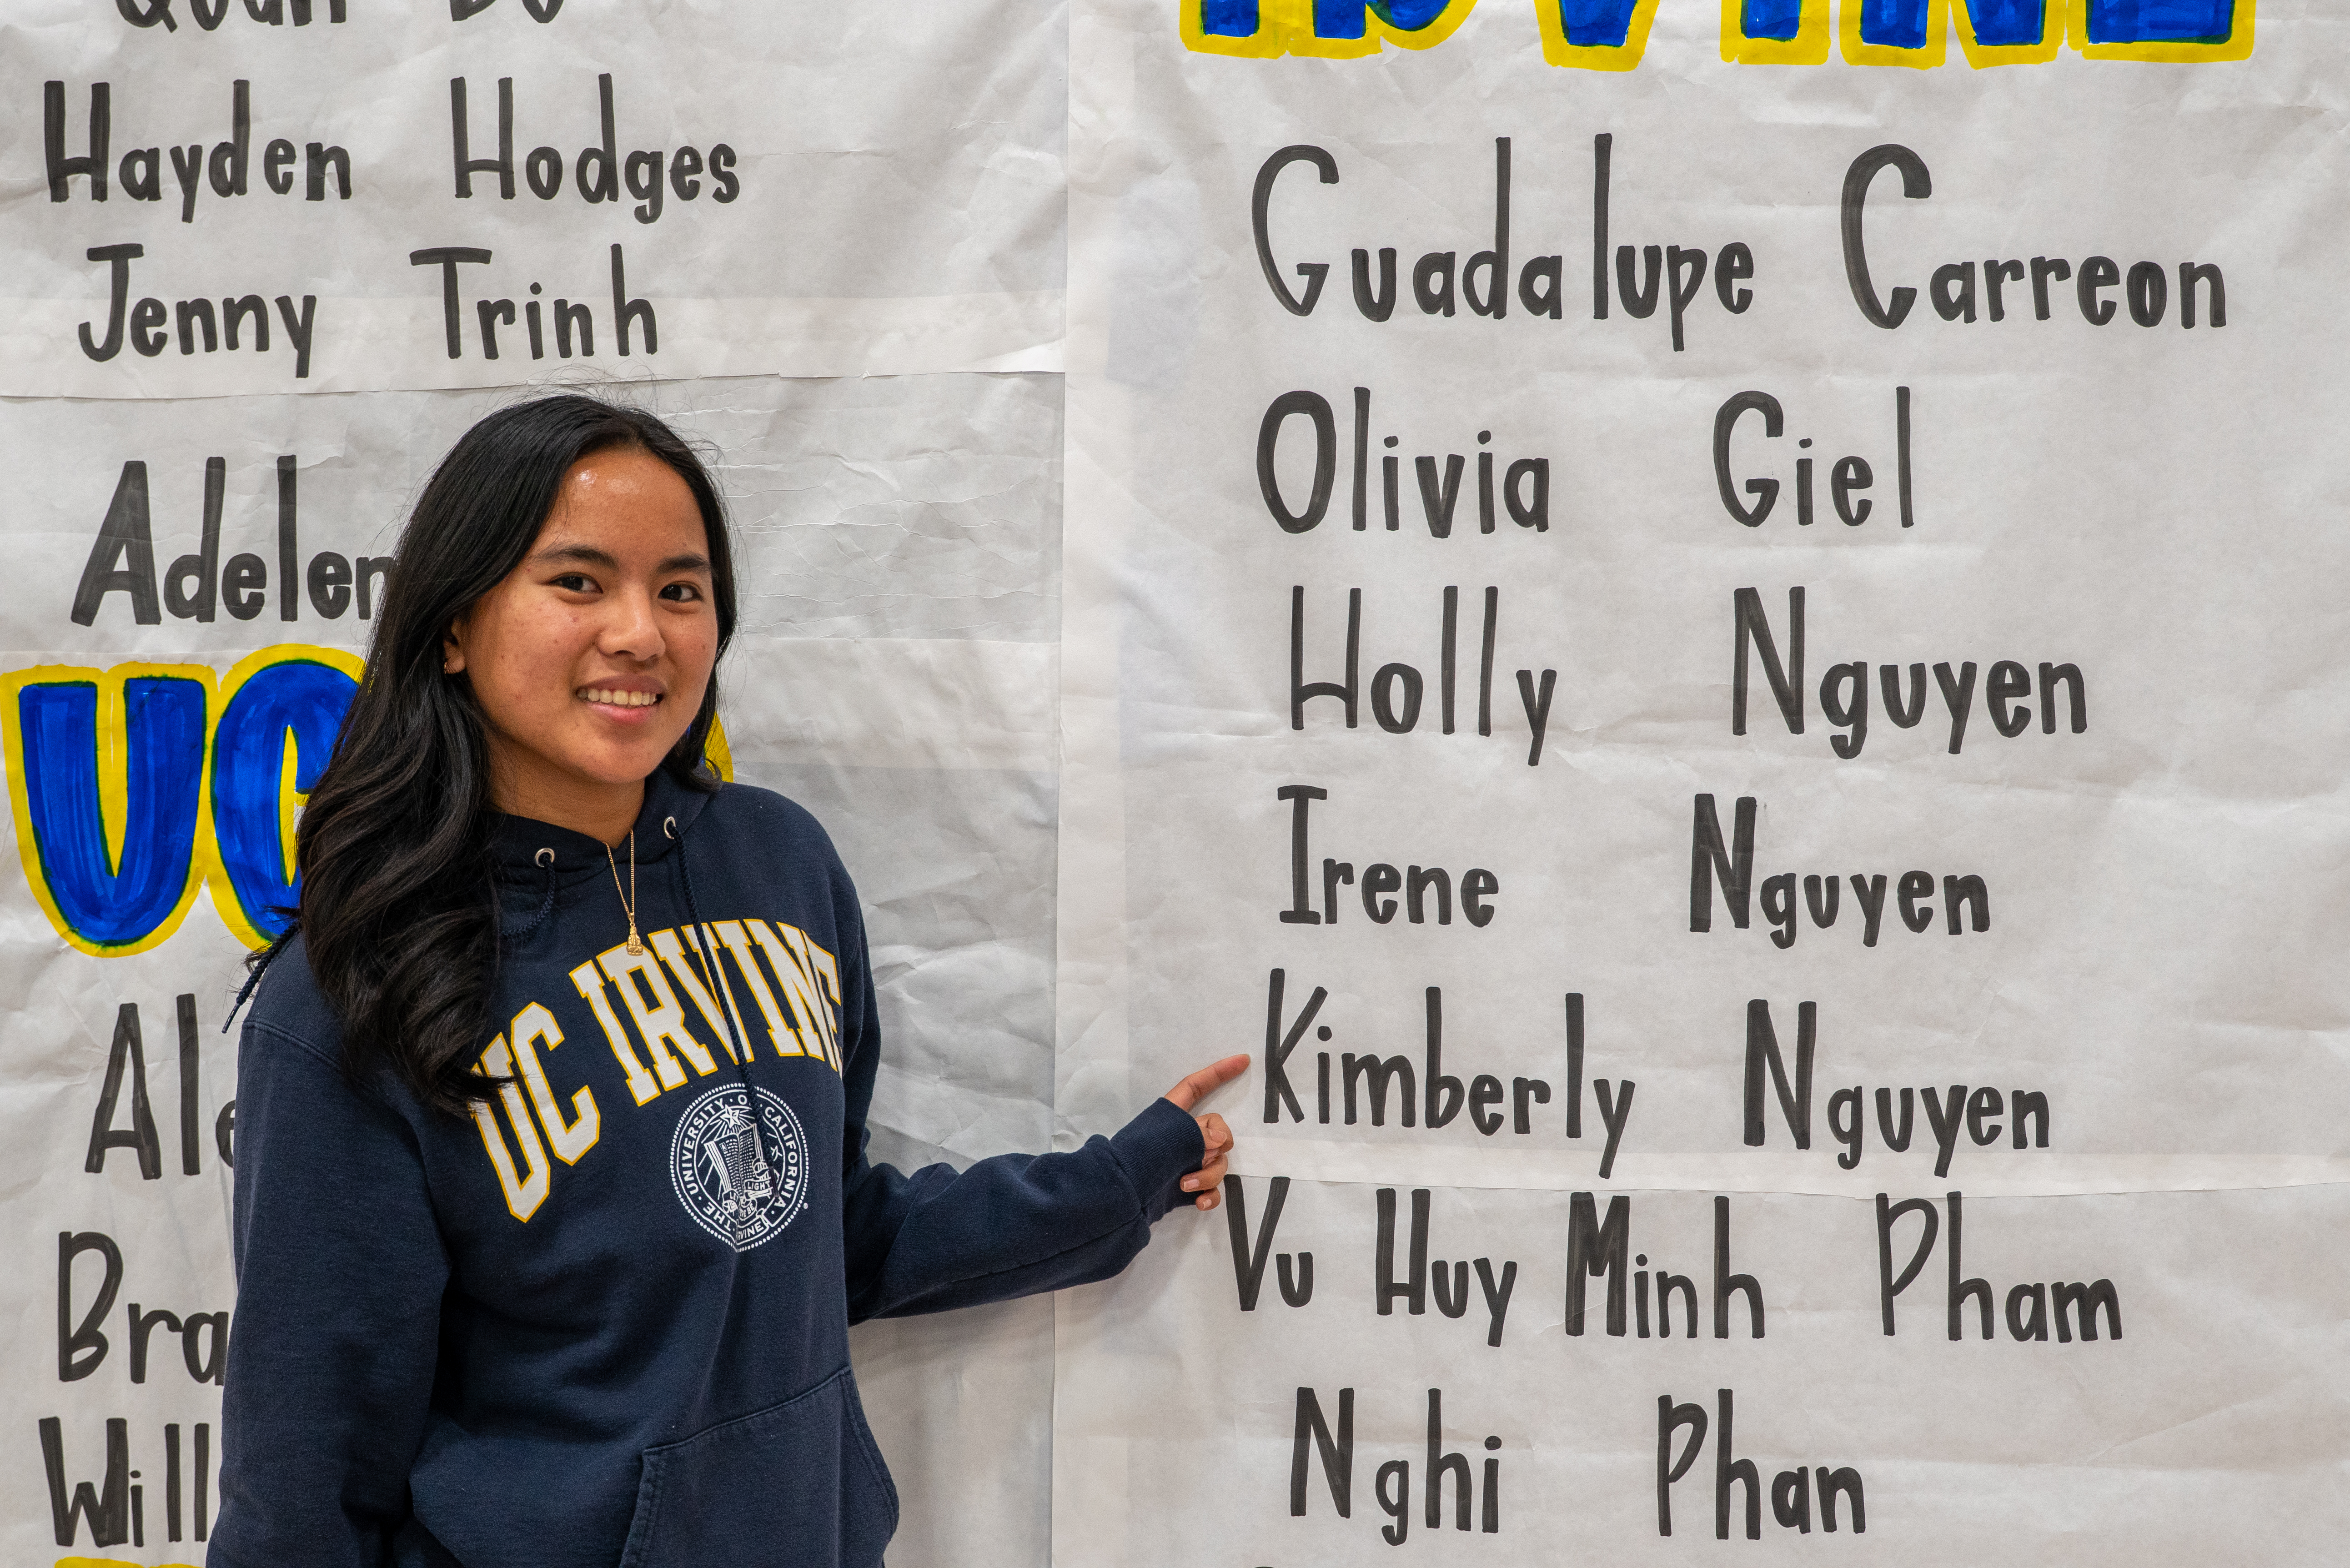 Quan Do
Hayden Hodges
Jenny Trinh
UC
IRVINE
Guadalupe Carreon
Olivia Giel
Holly Nguyen
Irene Nguyen
Kimberly Nguyen
Vu Huy Minh Pham
Nghi Phan
UC IRVINE
THE UNIVERSITY OF CALIFORNIA
IRVINE
LIGHT